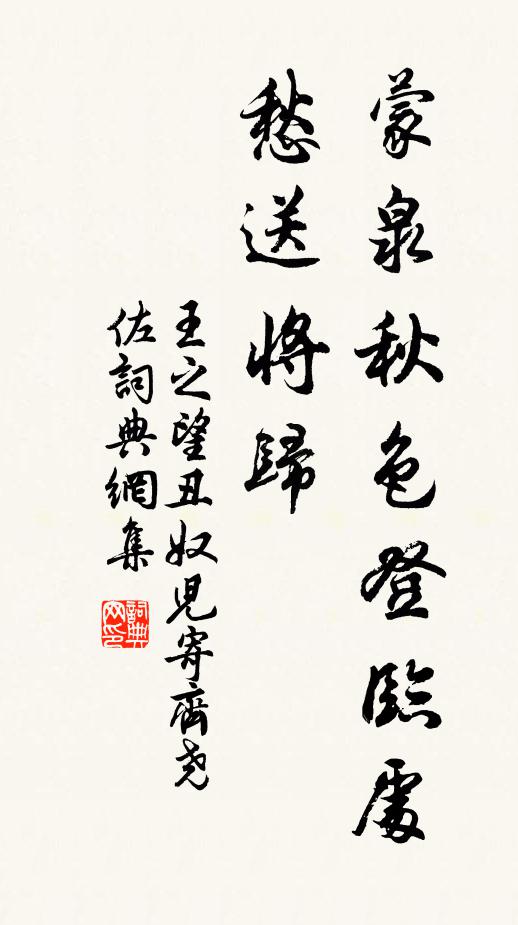 蒙泉秋色登臨處
愁送將歸
王之望丑奴兒寄齊尧
佐詞典網集
詞典网印